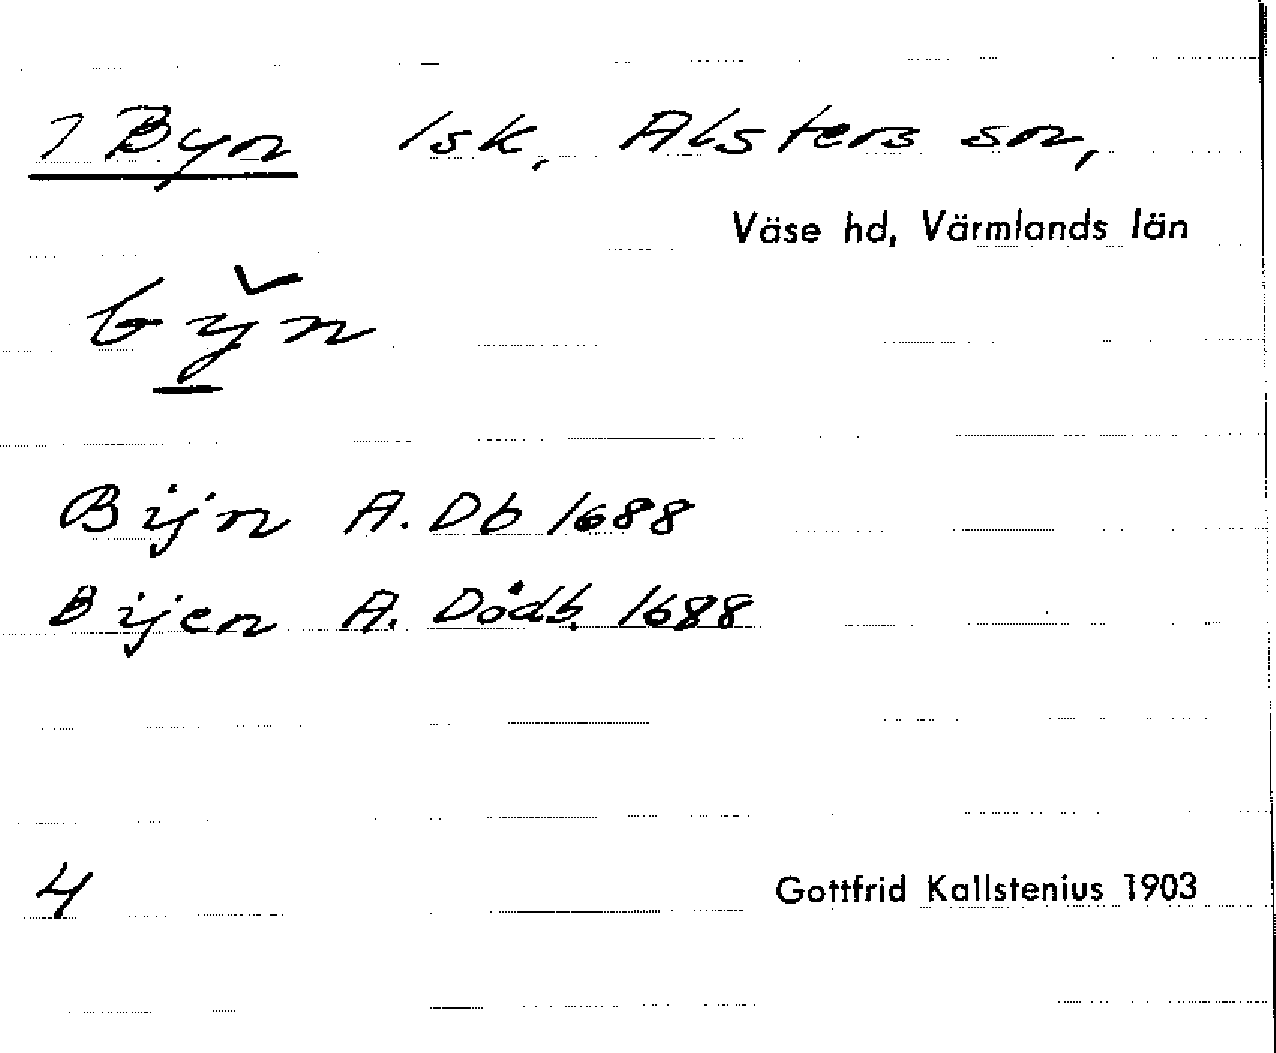 1 Byn 1sk, Alsters sn,
Väse hd, Värmlands län
by̌n
Bijn A. Db 1688
Bijen A. Dödb. 1688
4
Gottfrid Kallstenius 1903